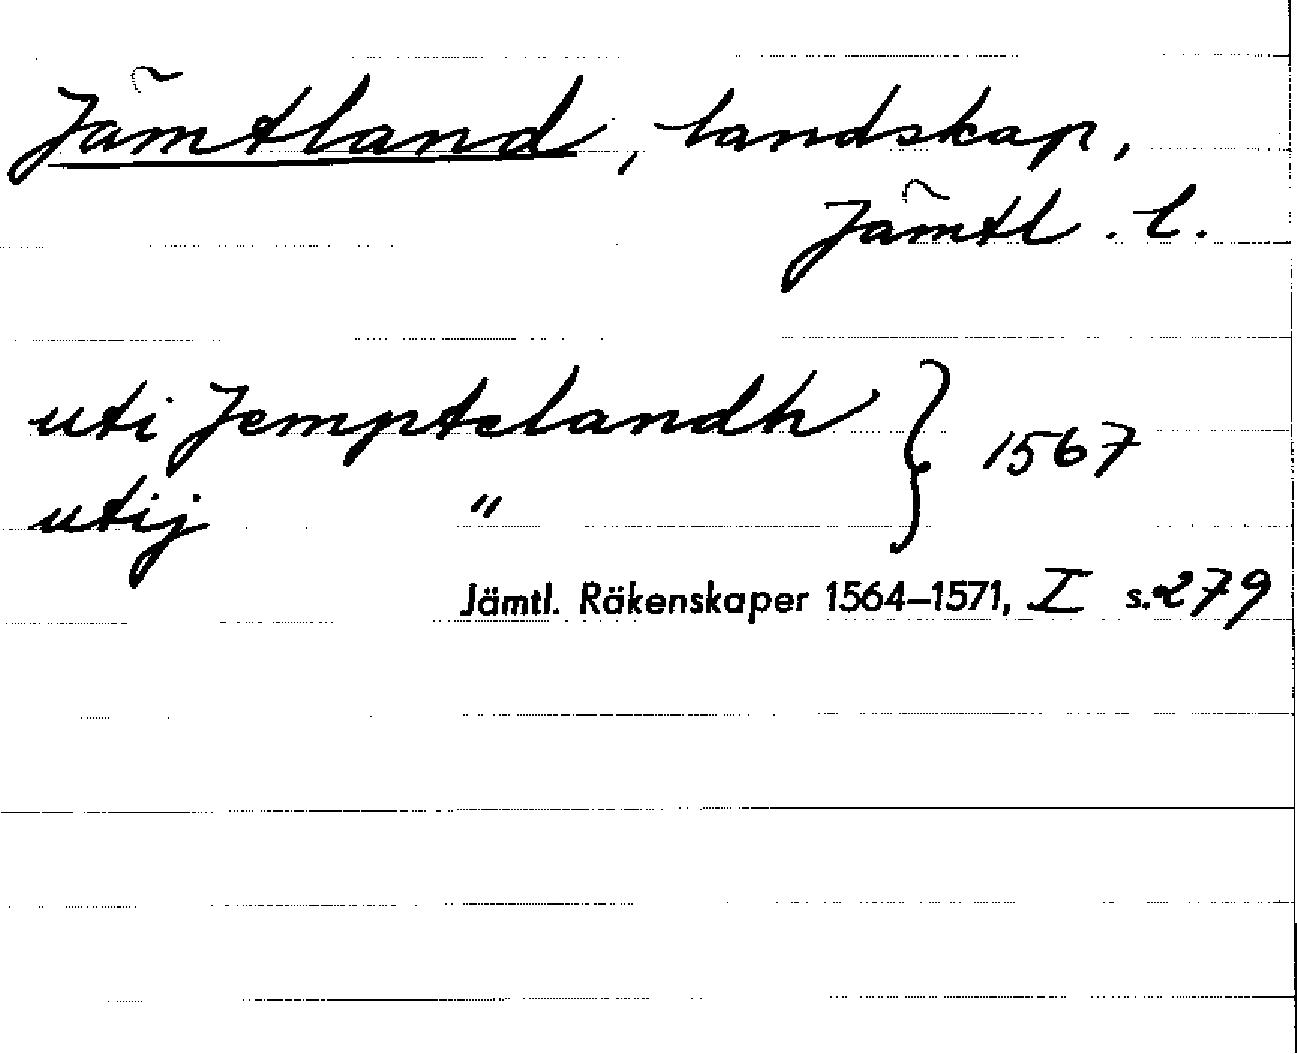 Jämtland, landskap,
Jämtl. l.
uti Jemptelandh } 1567
utij "
Jämtl. Räkenskaper 1564–1571, I s. 279